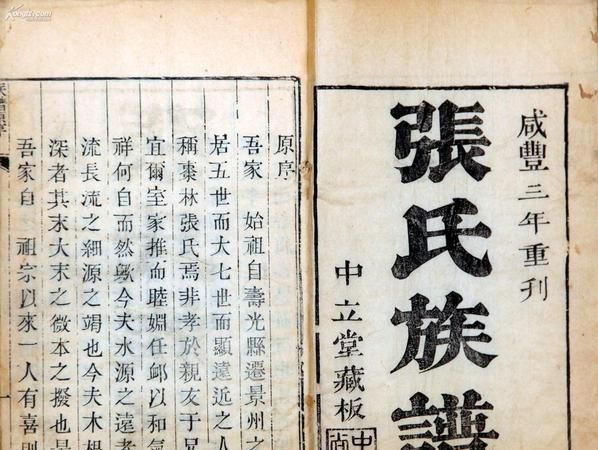 咸豐三年重刊
張氏族譜
中立堂藏板
中
原序
吾家 始祖自壽光縣遷景州之
居五世而大七世而顯遠近之人
稱棗林張氏焉非孝於親友于兄
宜爾室家推而睦婣任䘏以和氣
祥何自而然歟今夫水源之遠者
流長流之細源之竭也今夫木根
深者其末大末之微本之撥也是
吾家自 祖宗以來一人有喜則